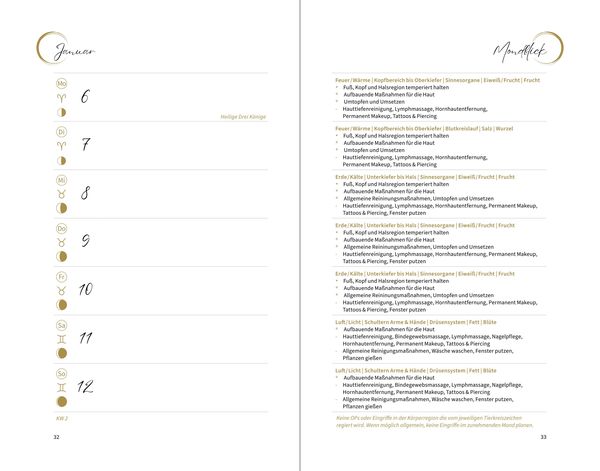 Januar
Mo
6
Heilige Drei Könige
Di
7
Mi
8
Do
9
Fr
10
Sa
11
So
12
KW 2
32
Mondblick
Feuer/Wärme | Kopfbereich bis Oberkiefer | Sinnesorgane | Eiweiß/Frucht | Frucht
+ Fuß, Kopf und Halsregion temperiert halten
+ Aufbauende Maßnahmen für die Haut
+ Umtopfen und Umsetzen
- Hauttiefenreinigung, Lymphmassage, Hornhautentfernung,
Permanent Makeup, Tattoos & Piercing
Feuer/Wärme | Kopfbereich bis Oberkiefer | Blutkreislauf | Salz | Wurzel
+ Fuß, Kopf und Halsregion temperiert halten
+ Aufbauende Maßnahmen für die Haut
+ Umtopfen und Umsetzen
- Hauttiefenreinigung, Lymphmassage, Hornhautentfernung,
Permanent Makeup, Tattoos & Piercing
Erde/Kälte | Unterkiefer bis Hals | Sinnesorgane | Eiweiß/Frucht | Frucht
+ Fuß, Kopf und Halsregion temperiert halten
+ Aufbauende Maßnahmen für die Haut
+ Allgemeine Reininungsmaßnahmen, Umtopfen und Umsetzen
- Hauttiefenreinigung, Lymphmassage, Hornhautentfernung, Permanent Makeup,
Tattoos & Piercing, Fenster putzen
Erde/Kälte | Unterkiefer bis Hals | Sinnesorgane | Eiweiß/Frucht | Frucht
+ Fuß, Kopf und Halsregion temperiert halten
+ Aufbauende Maßnahmen für die Haut
+ Allgemeine Reininungsmaßnahmen, Umtopfen und Umsetzen
- Hauttiefenreinigung, Lymphmassage, Hornhautentfernung, Permanent Makeup,
Tattoos & Piercing, Fenster putzen
Erde/Kälte | Unterkiefer bis Hals | Sinnesorgane | Eiweiß/Frucht | Frucht
+ Fuß, Kopf und Halsregion temperiert halten
+ Aufbauende Maßnahmen für die Haut
+ Allgemeine Reininungsmaßnahmen, Umtopfen und Umsetzen
- Hauttiefenreinigung, Lymphmassage, Hornhautentfernung, Permanent Makeup,
Tattoos & Piercing, Fenster putzen
Luft/Licht | Schultern Arme & Hände | Drüsensystem | Fett | Blüte
+ Aufbauende Maßnahmen für die Haut
- Hauttiefenreinigung, Bindegewebsmassage, Lymphmassage, Nagelpflege,
Hornhautentfernung, Permanent Makeup, Tattoos & Piercing
- Allgemeine Reinigungsmaßnahmen, Wäsche waschen, Fenster putzen,
Pflanzen gießen
Luft/Licht | Schultern Arme & Hände | Drüsensystem | Fett | Blüte
+ Aufbauende Maßnahmen für die Haut
- Hauttiefenreinigung, Bindegewebsmassage, Lymphmassage, Nagelpflege,
Hornhautentfernung, Permanent Makeup, Tattoos & Piercing
- Allgemeine Reinigungsmaßnahmen, Wäsche waschen, Fenster putzen,
Pflanzen gießen
Keine OPs oder Eingriffe in der Körperregion die vom jeweiligen Tierkreiszeichen
regiert wird. Wenn möglich allgemein, keine Eingriffe im zunehmenden Mond planen.
33